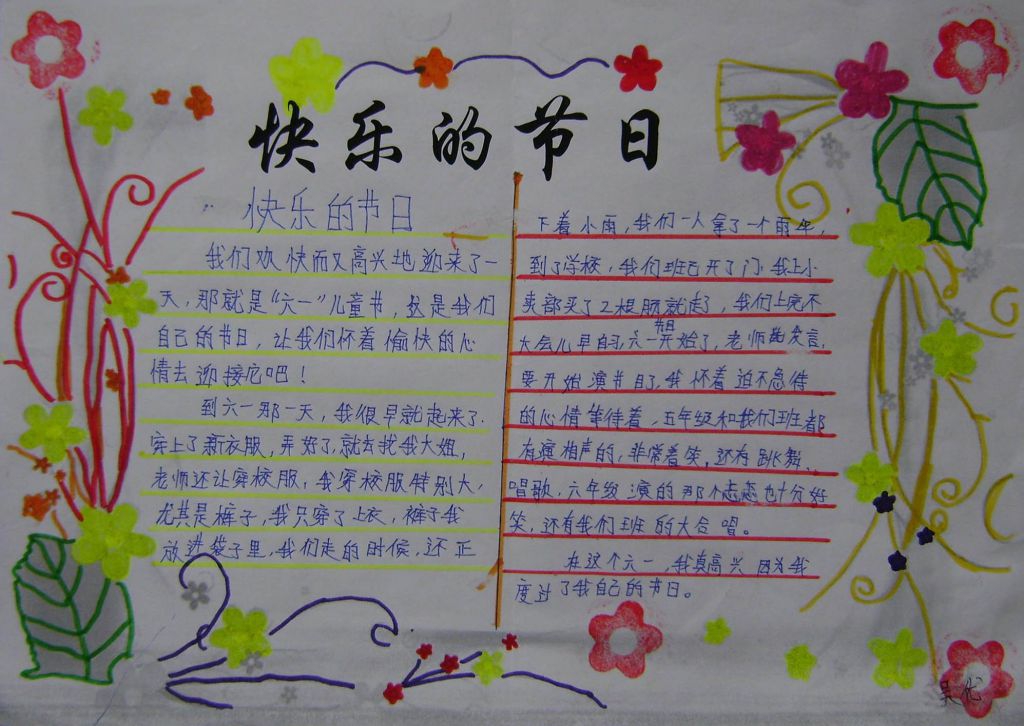 快乐的节日
快乐的节日
我们欢快而又高兴地迎来了一
天，那就是“六一”儿童节，这是我们
自己的节日，让我们怀着愉快的心
情去迎接它吧！
到六一那一天，我很早就起来了.
穿上了新衣服，弄好了,就去找我大姐，
老师还让穿校服，我穿校服特别大，
尤其是裤子，我只穿了上衣，裤子我
放进袋子里，我们走的时候，还正
下着小雨，我们一人拿了一个雨伞，
到了学校，我们班已开了门，我上小
卖部买了2根肠就走了，我们上完不
大会儿早自习,六一节目开始了，老师发言，
要开始演节目了,我怀着迫不急待
的心情等待着，五年级和我们班都
有演相声的，非常着笑，还有跳舞、
唱歌，六年级演的那个忐忑也十分好
笑，还有我们班的大合唱。
在这个六一，我真高兴因为我
度过了我自己的节日。
吴优